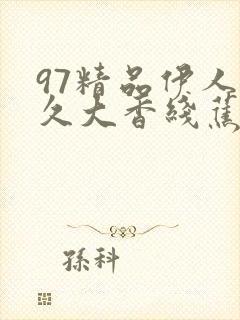 97精品伊人
久大香綫蕉
孫科